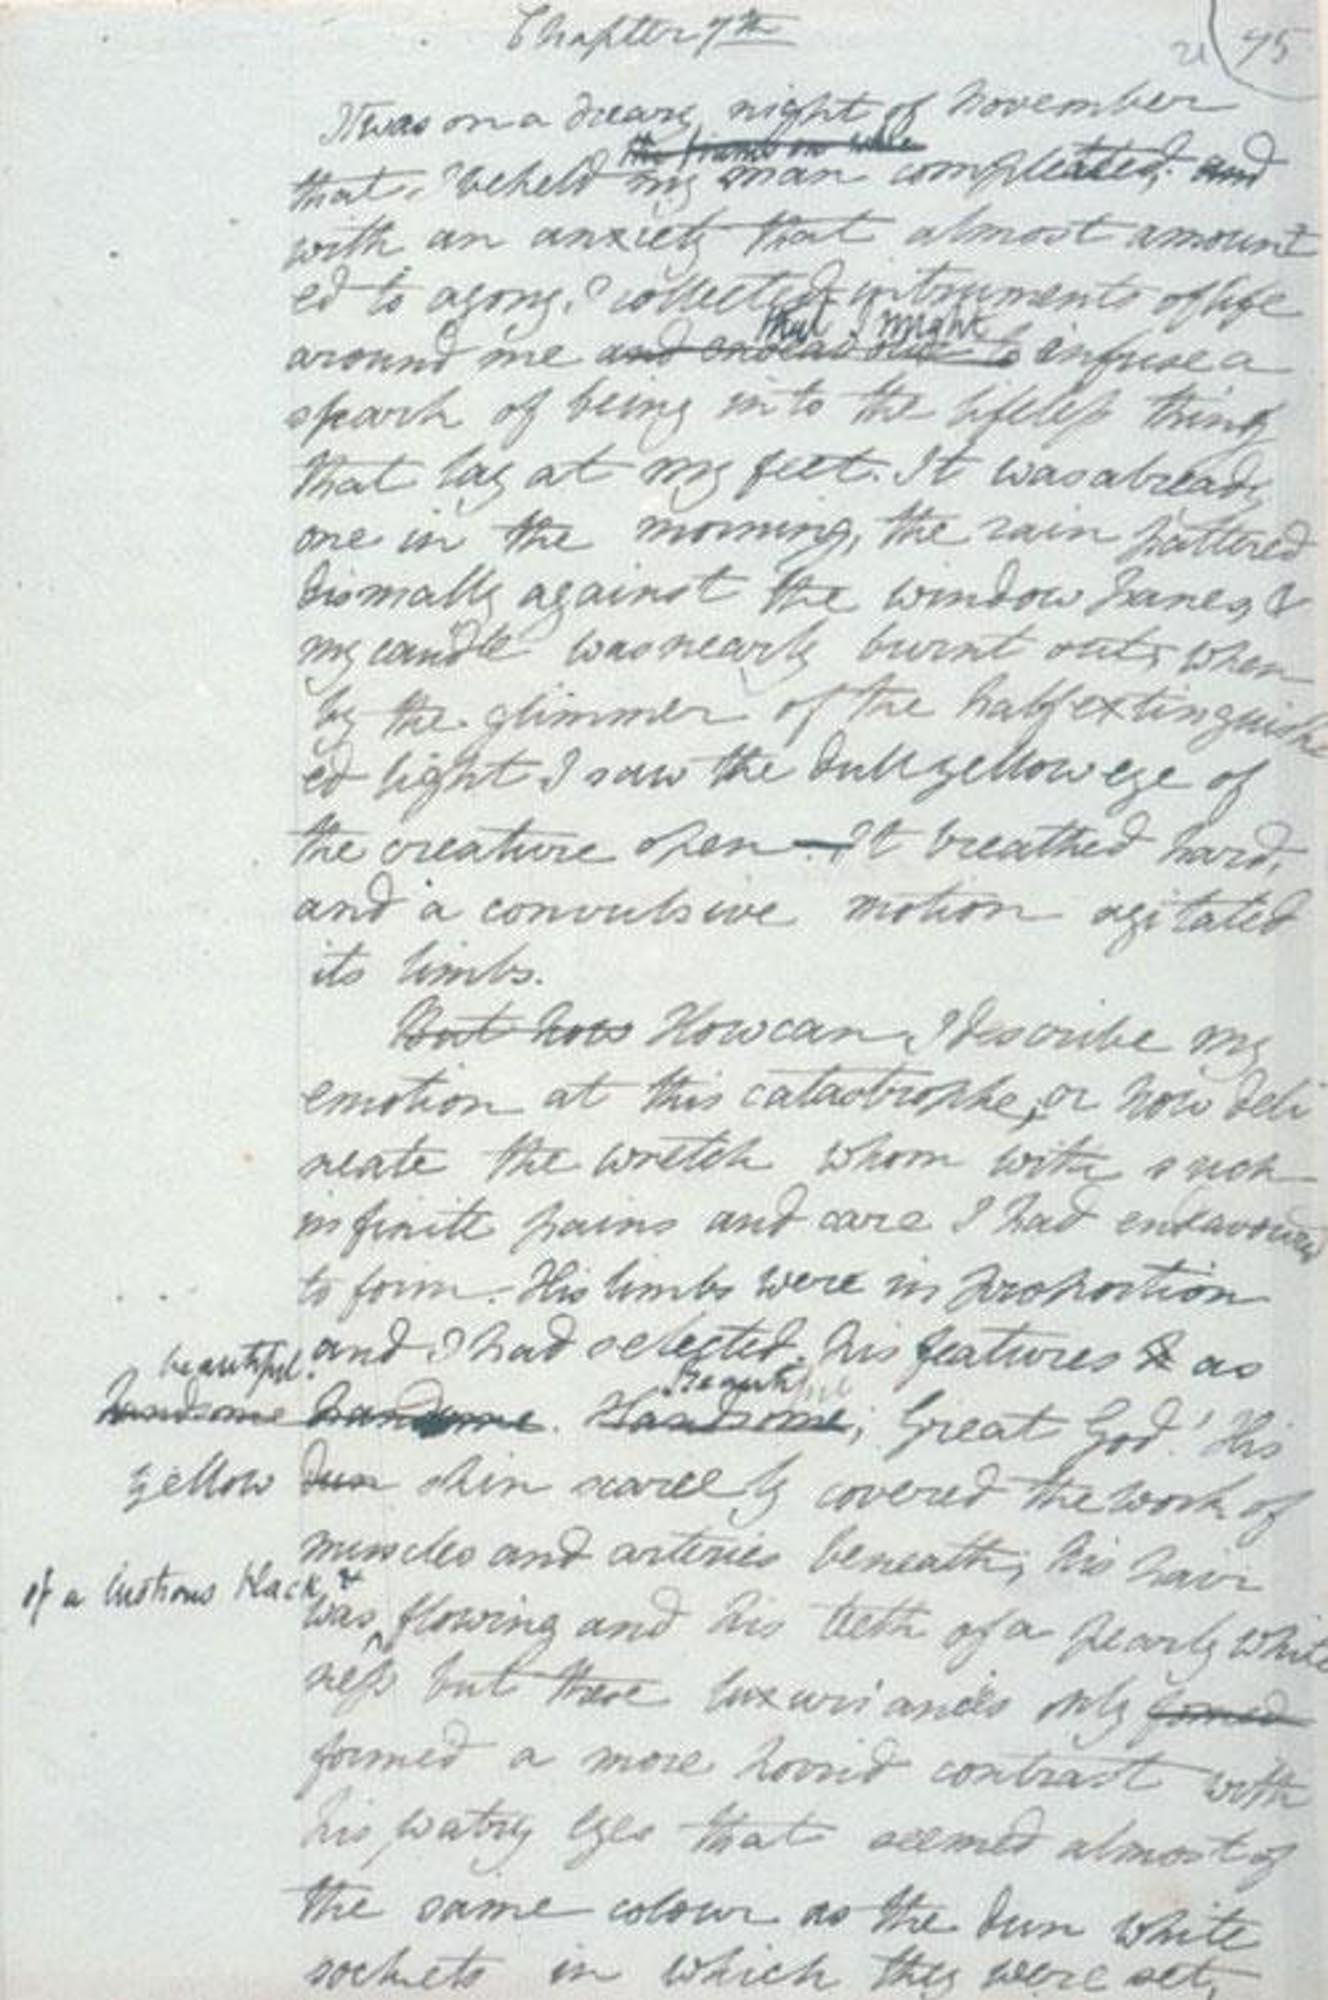 Chapter 7th
21 75
It was on a dreary night of November
the frame on whi
that I beheld my man compleated, and
with an anxiety that almost amount
ed to agony, I collected instruments of life
that I might
around me and endeavour to infuse a
spark of being into the lifeless thing
that lay at my feet. It was already
one in the morning, the rain pattered
dismally against the window panes, &
my candle was nearly burnt out, when
by the glimmer of the half extinguish
ed light I saw the dull yellow eye of
the creature open — It breathed hard,
and a convulsive motion agitated
its limbs.
But how How can I describe my
emotion at this catastrophe, or how deli
neate the wretch whom with such
infinite pains and care I had endeavoured
to form. His limbs were in proportion
and I had selected his features & as
beautiful. Beautiful
handsome handsome. Handsome; Great God! His
yellow dun skin scarcely covered the work of
muscles and arteries beneath; his hair
of a lustrous black, &
was flowing and his teeth of a pearly white
ness but these luxuriances only fomed
formed a more horrid contrast with
his watry eyes that seemed almost of
the same colour as the dun white
sockets in which they were set,